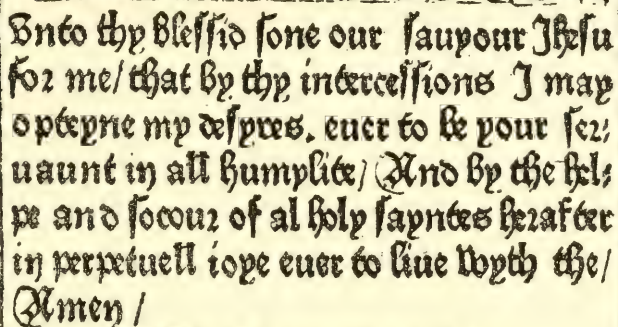 Vnto thy blessid sone our sauyour Jhesu
for me/ that by thy intercessions I may
opteyne my desyres. euer to be your ser⸗
uaunt in all humylite/ And by the hel⸗
pe and socour of al holy sayntes herafter
in perpetuell ioye euer to liue wyth the/
Amen /